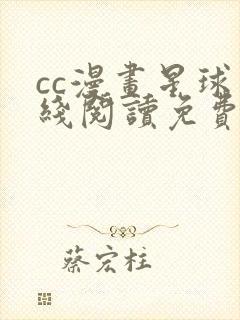 cc漫畫星球
綫閱讀免費
蔡宏柱